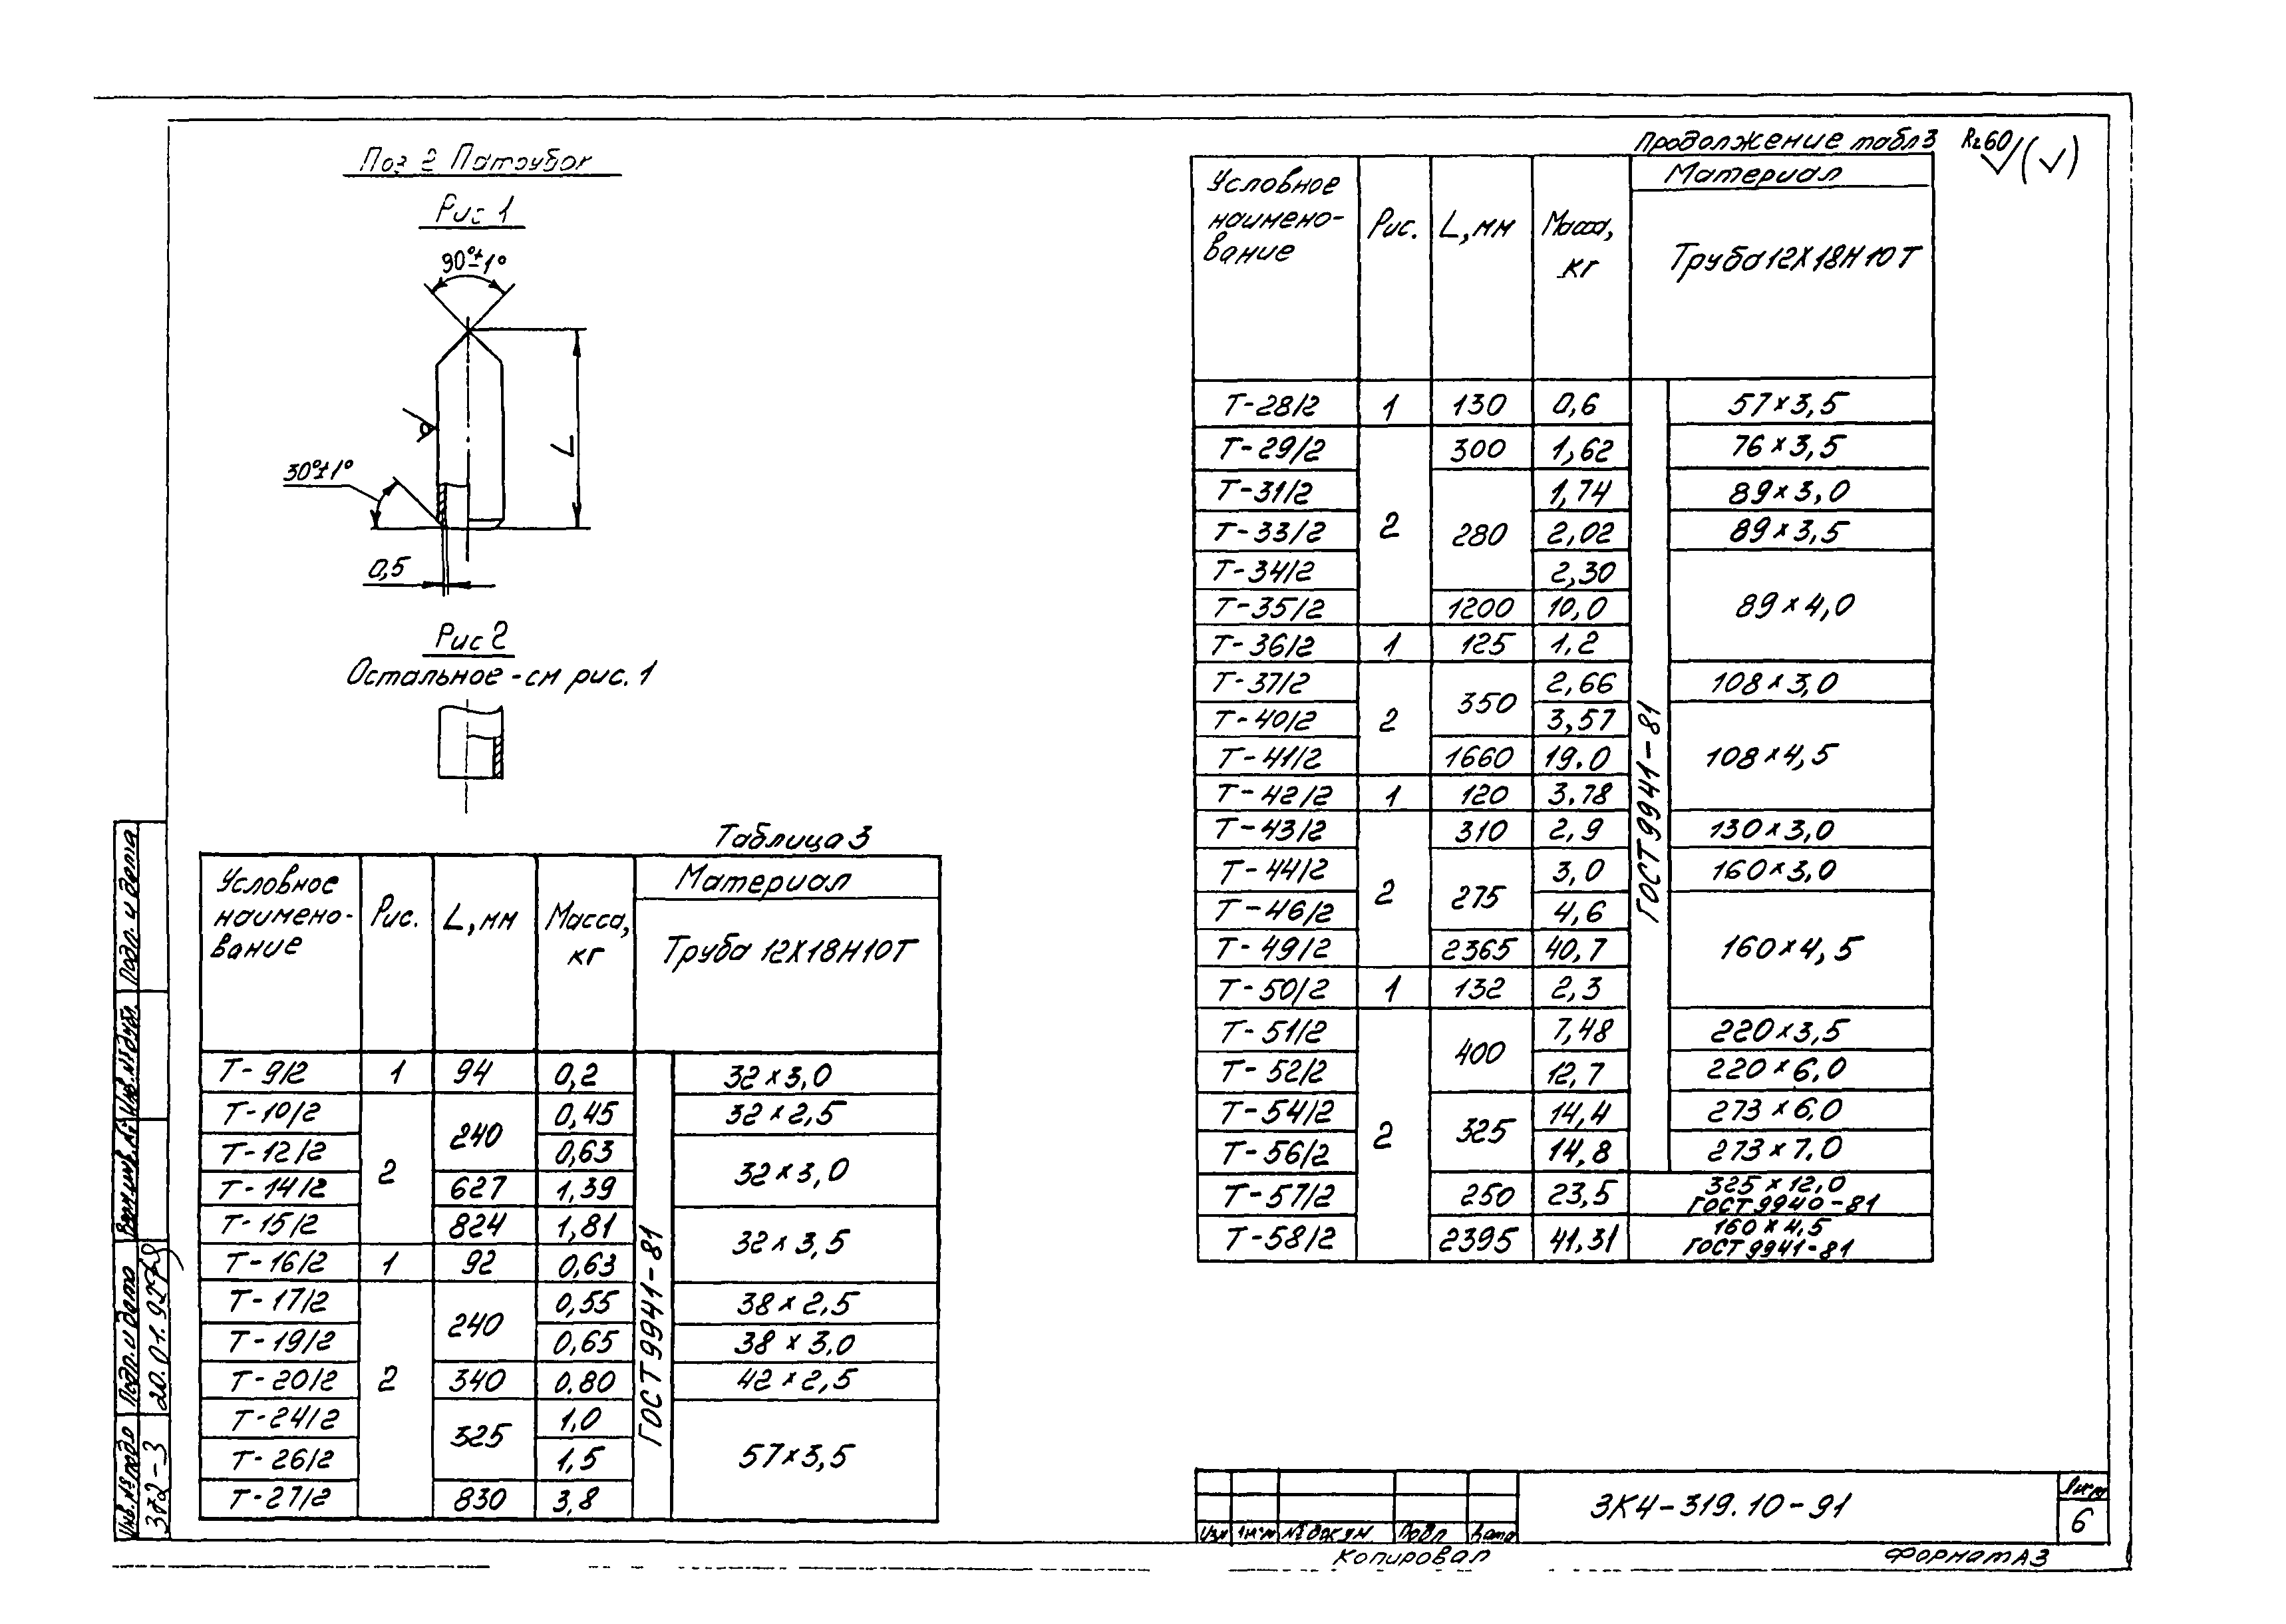 Поз 2 Патрубок
Рис 1
90°±1°
L
30°±1°
0,5
Рис 2
Остальное - см рис. 1
Таблица 3
Условное наимено-вание | Рис. | L, мм | Масса, кг | Материал
Труба 12Х18Н10Т
ГОСТ 9941-81
Т-9/2 | 1 | 94 | 0,2 | 32×3,0
Т-10/2 | 2 | 240 | 0,45 | 32×2,5
Т-12/2 | 0,63 | 32×3,0
Т-14/2 | 627 | 1,39
Т-15/2 | 824 | 1,81 | 32×3,5
Т-16/2 | 1 | 92 | 0,63
Т-17/2 | 2 | 240 | 0,55 | 38×2,5
Т-19/2 | 0,65 | 38×3,0
Т-20/2 | 340 | 0.80 | 42×2,5
Т-24/2 | 325 | 1,0 | 57×3,5
Т-26/2 | 1,5
Т-27/2 | 830 | 3,8
Продолжение табл 3
Rz60 (✓)
Условное наимено-вание | Рис. | L, мм | Масса, кг | Материал
Труба 12Х18Н10Т
ГОСТ 9941-81
Т-28/2 | 1 | 130 | 0,6 | 57×3,5
Т-29/2 | 2 | 300 | 1,62 | 76×3,5
Т-31/2 | 280 | 1,74 | 89×3,0
Т-33/2 | 2,02 | 89×3,5
Т-34/2 | 2,30 | 89×4,0
Т-35/2 | 1200 | 10,0
Т-36/2 | 1 | 125 | 1.2
Т-37/2 | 2 | 350 | 2,66 | 108×3,0
Т-40/2 | 3,57 | 108×4,5
Т-41/2 | 1660 | 19.0
Т-42/2 | 1 | 120 | 3.78
Т-43/2 | 2 | 310 | 2,9 | 130×3,0
Т-44/2 | 275 | 3,0 | 160×3,0
Т-46/2 | 4,6 | 160×4,5
Т-49/2 | 2365 | 40,7
Т-50/2 | 1 | 132 | 2,3
Т-51/2 | 2 | 400 | 7,48 | 220×3,5
Т-52/2 | 12,7 | 220×6,0
Т-54/2 | 325 | 14,4 | 273×6,0
Т-56/2 | 14,8 | 273×7.0
Т-57/2 | 250 | 23,5 | 325×12,0
ГОСТ 9940-81
Т-58/2 | 2395 | 41,31 | 160×4,5
ГОСТ 9941-81
Подп. и дата
Инв.№дубл.
Взам.инв.№
Подп. и дата
20.01.92
Инв.№подл
372-3
Изм Лист № докум Подп Дата
ЗК4-319.10-91
Лист
6
Копировал
Формат А3